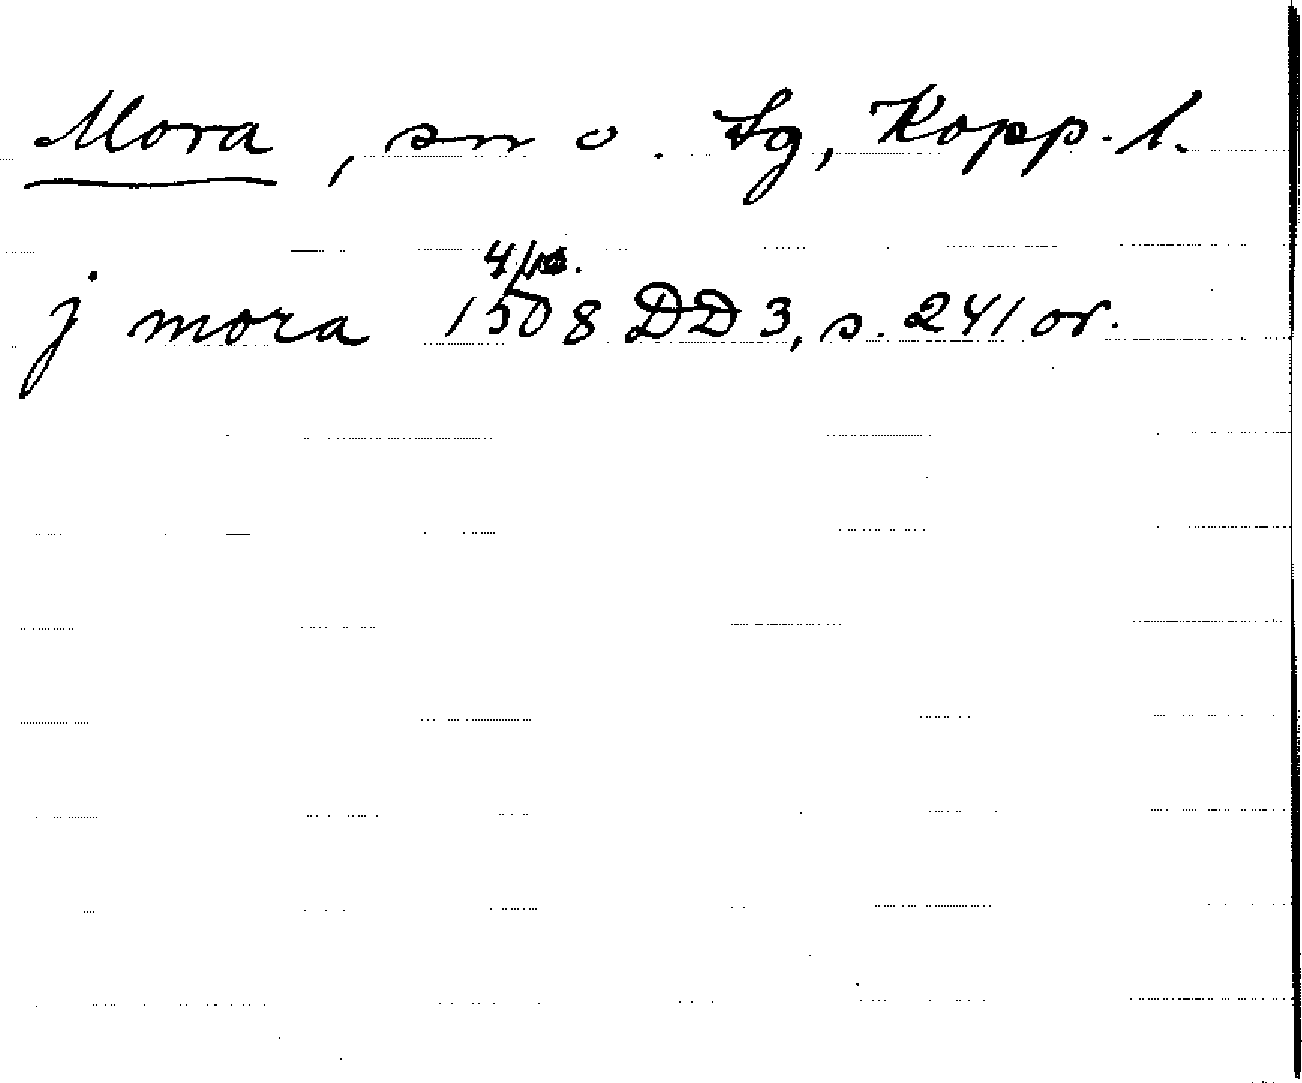 Mora, sn o. tg, Kopp. l.
j mora 1508 4/10. DD 3, s. 241 or.